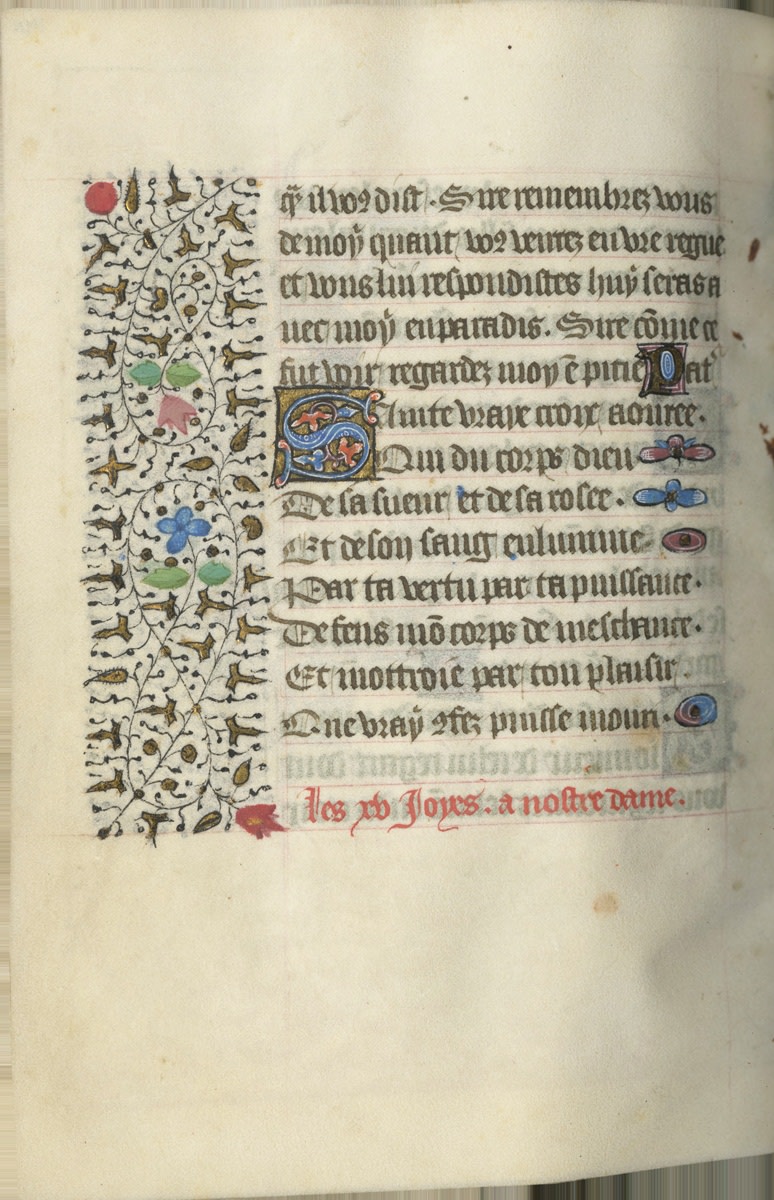 q̃ il voꝯ dist . Sire remembrez vous
de moy quant voꝯ venrez en vr̃e regne
et vous lui respondistes huy seras a
uec moy en paradis . Sire cõme ce
fut voir regardez moy ẽ pitie Pat̾
Sainte vraye croix aouree .
Qui du corps dieu
De sa sueur et de sa rosee .
Et de son sang enluminee
Par ta vertu par ta puissance .
Defens mõ corps de meschance .
Et mottroie par ton plaisir .
Que vray ꝯfez puisse mourir .
les xv Joyes . a nostre dame .